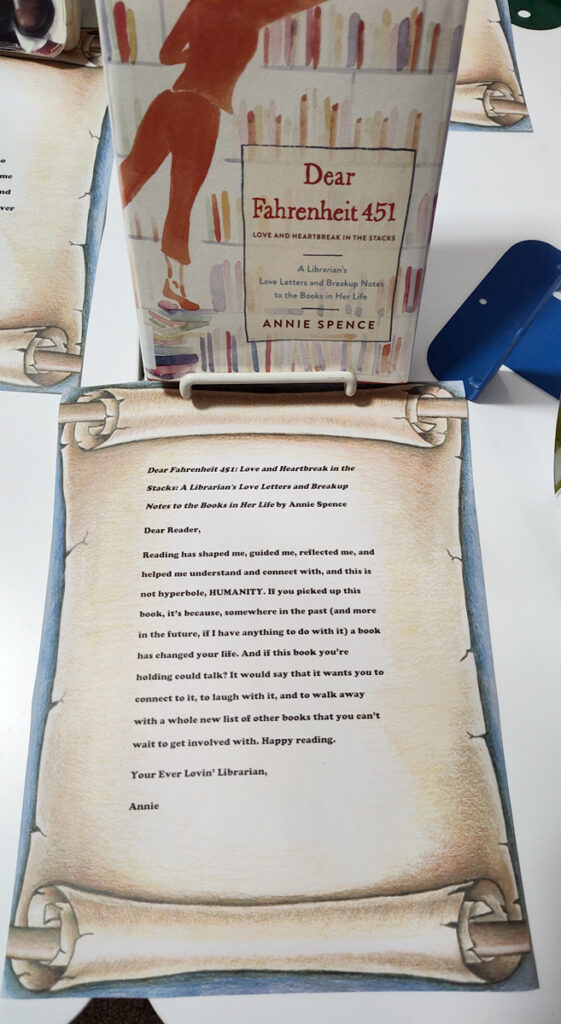 Dear
Fahrenheit 451
LOVE AND HEARTBREAK IN THE STACKS
A Librarian's
Love Letters and Breakup Notes
to the Books in Her Life
ANNIE SPENCE
me
nd
ver
Dear Fahrenheit 451: Love and Heartbreak in the
Stacks: A Librarian's Love Letters and Breakup
Notes to the Books in Her Life by Annie Spence
Dear Reader,
Reading has shaped me, guided me, reflected me, and
helped me understand and connect with, and this is
not hyperbole, HUMANITY. If you picked up this
book, it's because, somewhere in the past (and more
in the future, if I have anything to do with it) a book
has changed your life. And if this book you're
holding could talk? It would say that it wants you to
connect to it, to laugh with it, and to walk away
with a whole new list of other books that you can't
wait to get involved with. Happy reading.
Your Ever Lovin' Librarian,
Annie